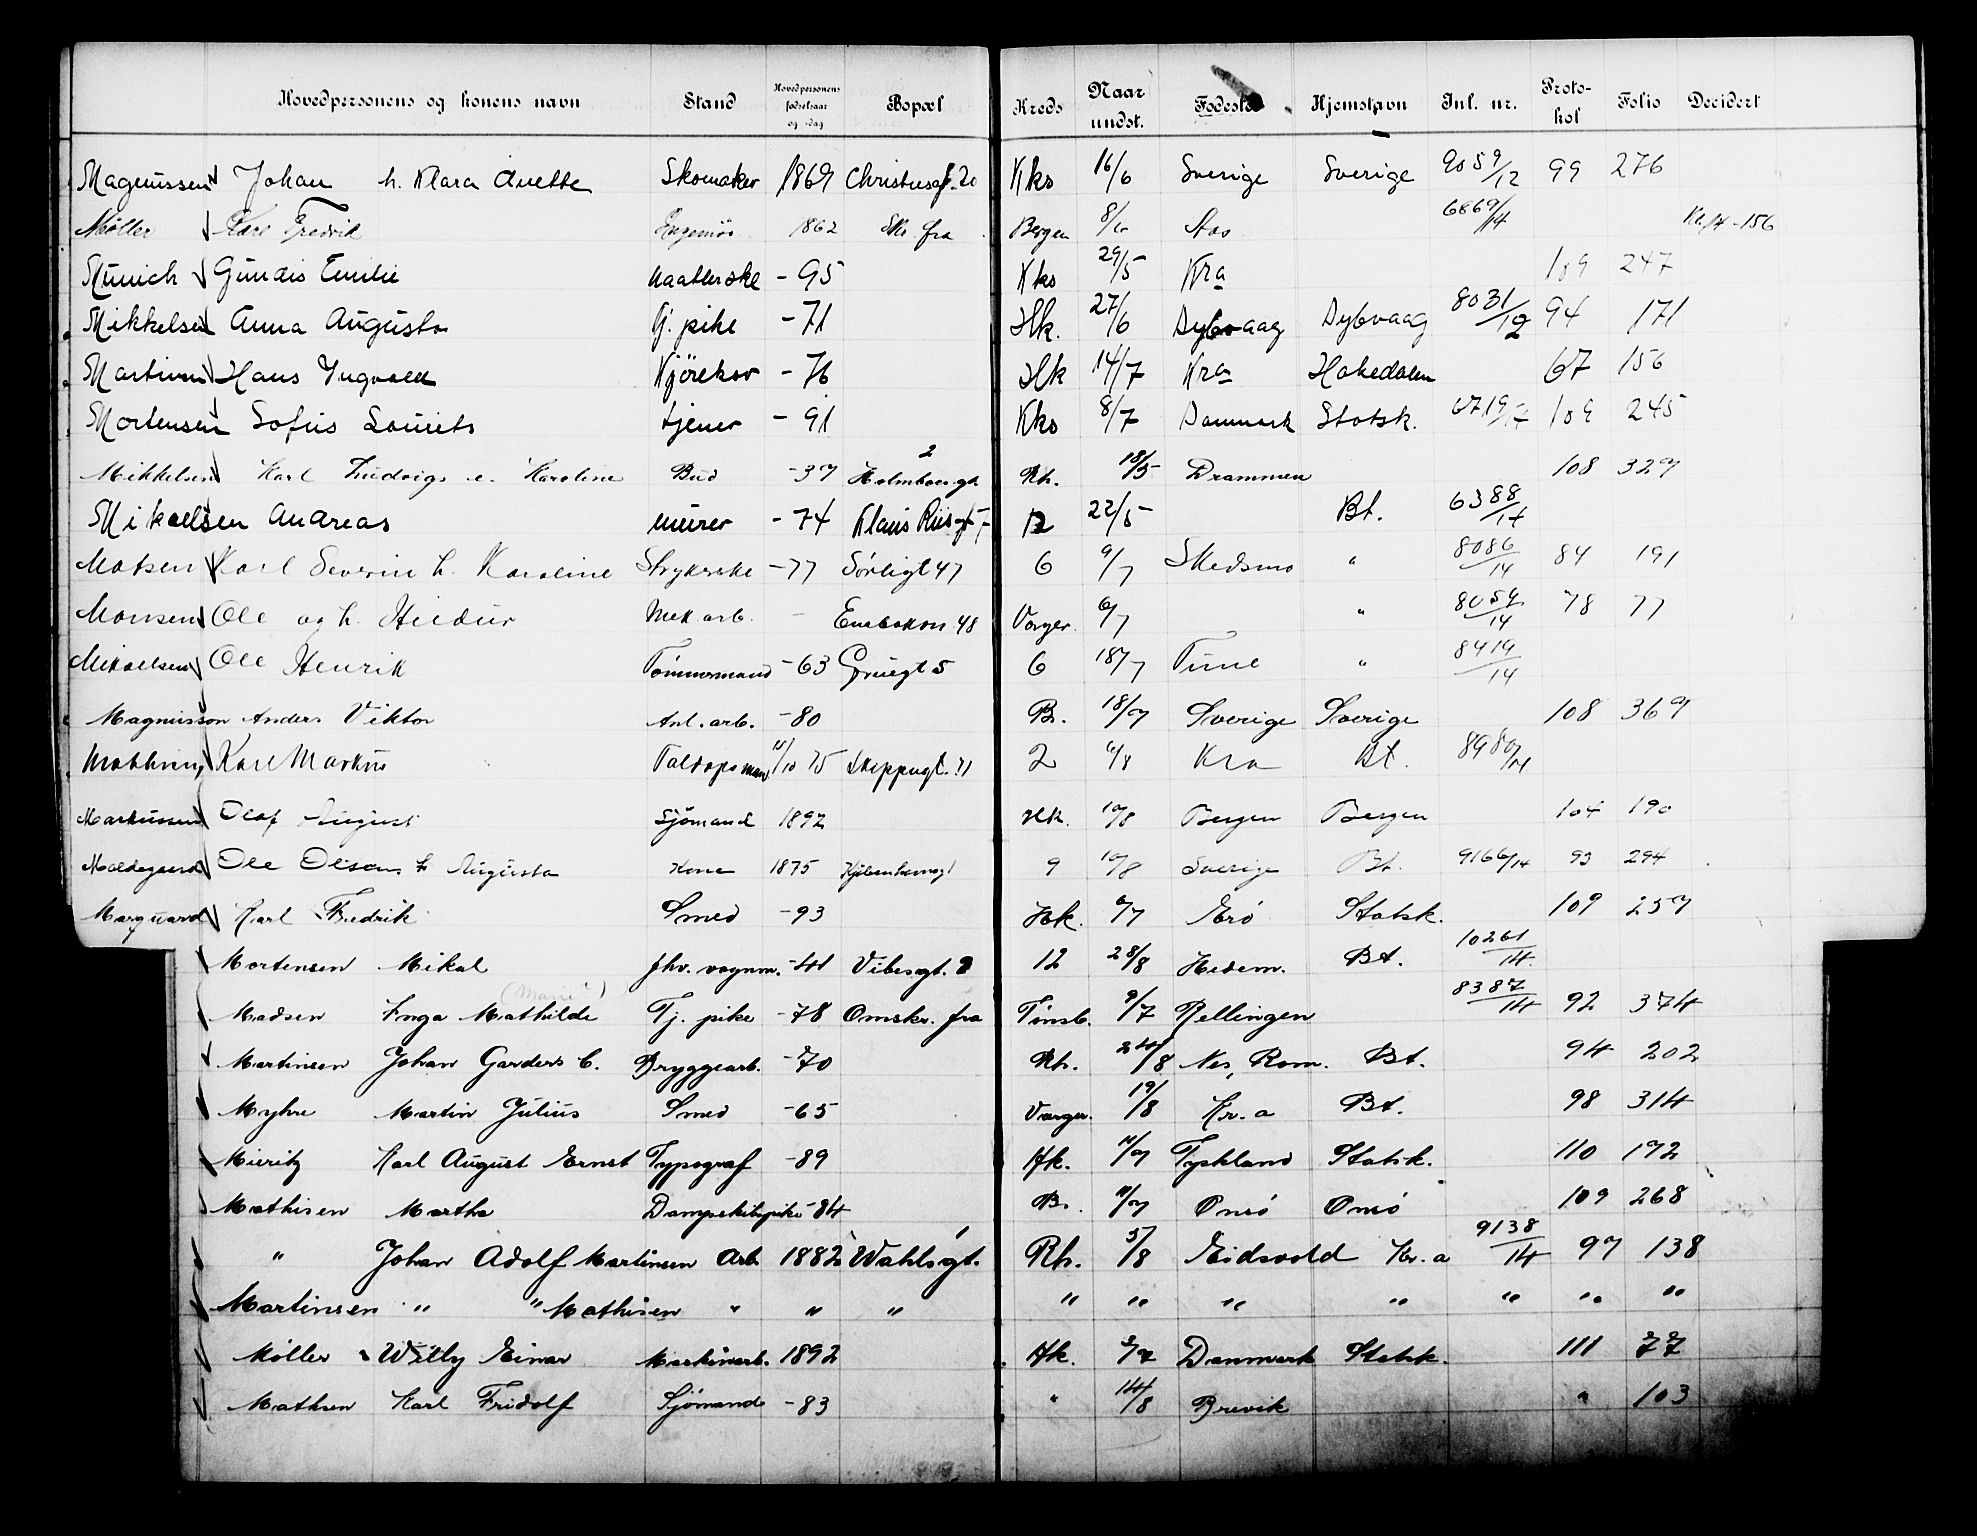 Hovedpersonens og konens navn Stand Hovedpersonens fødselsaar og -dag Bopæl Kreds Naar undst. Fødested Hjemstavn Inl. nr. Protokol Folio Decidert
Magnussen Johan h. Klara Anette Skomaker 1869 Christiesgt. 20 Kks 16/6 Sverige Sverige 9059/12 99 276
Møller Karl Fredrik 1862 Sk. fra Bergen 8/6 6869/14 Kr. 14-156
Munich Gundis Emilie Maatlerske - 95 Kks 29/5 Kra 109 247
Mikkelsen Anna Augusta Tj. pike - 71 Hk. 27/6 Dybvaag Dybvaag 8031/12 94 171
Martinsen Hans Ingvald Kjørekar - 76 Hk 14/7 Kra Hakedalen 67 156
Mortensen Sofus Laurits tjener - 91 Kks 8/7 Danmark Statsk. 6719/14 109 245
Mikkelsen Karl Ludvigs e. Karoline Bud - 37 Holmboesgt. 2 Rh. 18/5 Drammen 108 329
Mikaelsen Andreas murer - 74 Klaus Riisgt 7 12 22/5 Bt. 6388/14
Matsen Karl Severin h. Karoline Strykerske - 77 Sørligt 47 6 9/7 Skedsmo " 8086/14 84 191
Monsen Ole og h. Heidur Mek arb. - Enebakkv. 48 Varger. 6/7 " 8059/14 78 77
Mikaelsen Ole Henrik Tømmermand - 63 Gruegt 5 6 18/7 Tune " 8419/14
Magnusson Anders Viktor Anl. arb. - 80 B. 18/7 Sverige Sverige 108 369
Karl Markus 11/10 75 Skippergt. 21 2 6/8 Kra Bt. 8980/14
Markussen Olaf August Sjømand 1892 Hk. 10/8 Bergen Bergen 104 190
Maldegaard Ole Olsens h Augusta Kone 1875 Kjøbenhavngt 9 10/8 Sverige Bt. 9166/14 93 294
Marquard Karl Fredrik Smed - 93 Hk. 6/7 Erø Statsk. 109 257
Mortensen Mikal fhv. vognm. - 41 Vibesgt. 8 12 28/8 Hedem. Bt. 10261/14
Madsen Inga Mathilde (Marie) Tj. pike - 78 Omskr. fra Tønsb. 9/7 Rellingen 8387/14 92 374
Martinsen Johan Garders C. Bryggearb. - 70 Rh. 24/8 Nes, Rom. Bt. 94 202
Myhre Martin Julius Smed - 65 Varger. 19/8 Kr. a Bt. 98 314
Mieritz Karl August Ernst Typograf - 89 Hk. 11/9 Tyskland Statsk. 110 192
Mathisen Martha Dampskibspike - 84 B. 11/9 Onsø Onsø 109 268
" Johan Adolf Martinsen Arb. 1882 Wahlsgt. 1 Rh. 5/8 Eidsvold Kr. a 9138/14 97 138
Martinsen " " Mathisen " " " " " " " " " "
Møller Willy Einar Maskinarb. 1892 Hk. 3/9 Danmark Statsk. 111 77
Mathsen Karl Fridolf Sjømand - 83 " 14/8 Brevik " 103